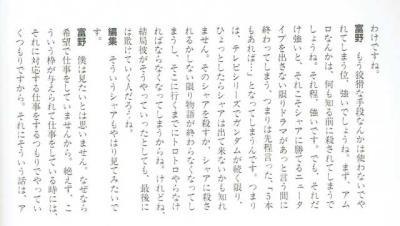 わけですね。
富野　もう狡猾な手段なんかは使わないでや
れてしまう位、強いでしょうね。まず、アム
ロなんかは、何も知る前に殺されてしまうで
しょうね。それ程、強いです。でも、それだ
け強いと、それこそシャアに勝てるニュータ
イプを出さない限りドラマがあっと言う間に
終わってしまう、つまりは先程言った、『5本
もあれば…』となってしまうんです。つまり
は、テレビシリーズでガンダムが続く限り、
ひょっとしたらシャアは出て来ないかも知れ
ません。そのシャアを殺すか、シャアに殺さ
れるかしない限り物語が終わらなくなってし
まうし、そこに行くまでにトロトロやらなけ
ればならなくなってしまうからね。けれどね、
結局彼がそうやっていったとしても、最後に
は敗けていく人だろうね。
編集　そういうシャアもやはり見てみたいで
すね。
富野　僕は見たいとは思いません。なぜなら
希望で仕事をしていませんから。絶えず、こ
ういう枠が与えられて仕事をしている時には、
それに対応する仕事をするつもりでやってい
くつもりですから。それにそういう話は、ア